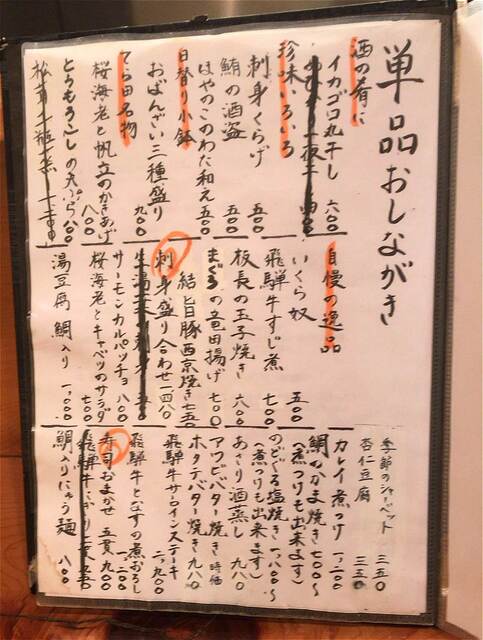 単品おしながき
酒の肴に
イカゴロ丸干し 六〇〇
珍味いろいろ
刺身くらげ 五〇〇
鮪の酒盗 五〇〇
はやのこのわた和え 五〇〇
日替り小鉢
おばんざい三種盛り 九〇〇
てら田名物
桜海老と帆立のかきあげ 八〇〇
とうもろこしの天ぷら 八〇〇
自慢の逸品
いくら奴 五〇〇
飛騨牛すじ煮 七〇〇
板長の玉子焼き 六〇〇
まぐろの竜田揚げ 七〇〇
結旨豚西京焼き 七五〇
刺身盛り合わせ 一四八〇
サーモンカルパッチョ 八〇〇
桜海老とキャベツのサラダ 七〇〇
湯豆腐 鯛入り 一、〇〇〇
季節のシャーベット 三五〇
杏仁豆腐 三五〇
カレイ煮つけ 一、二〇〇
鯛のかま焼き 七〇〇〜
(煮つけも出来ます)
のどぐろ塩焼き 一、八〇〇〜
(煮つけも出来ます)
あさり酒蒸し 九八〇
アワビバター焼き 時価
ホタテバター焼き 九八〇
飛騨牛サーロインステーキ 二、九〇〇
飛騨牛となすの煮おろし 一、二〇〇
寿司おまかせ 五貫 九〇〇
鯛入りにゅう麺 八〇〇